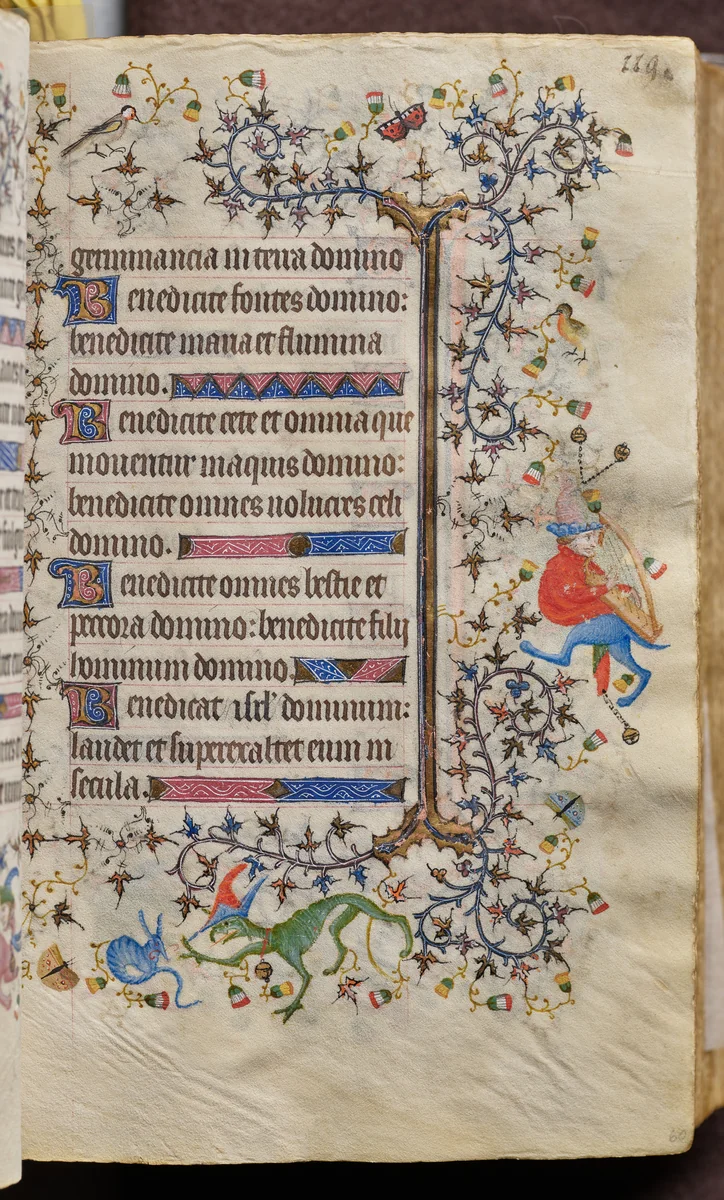 germinancia in terra domino
Benedicite fontes domino:
benedicite maria et flumina
domino.
Benedicite cete et omnia que
mouentur in aquis domino:
benedicite omnes uolucres celi
domino.
Benedicite omnes bestie et
peccora domino: benedicite filij
hominum domino.
Benedicat isrl' dominum:
laudet et superexaltet eum in
secula.